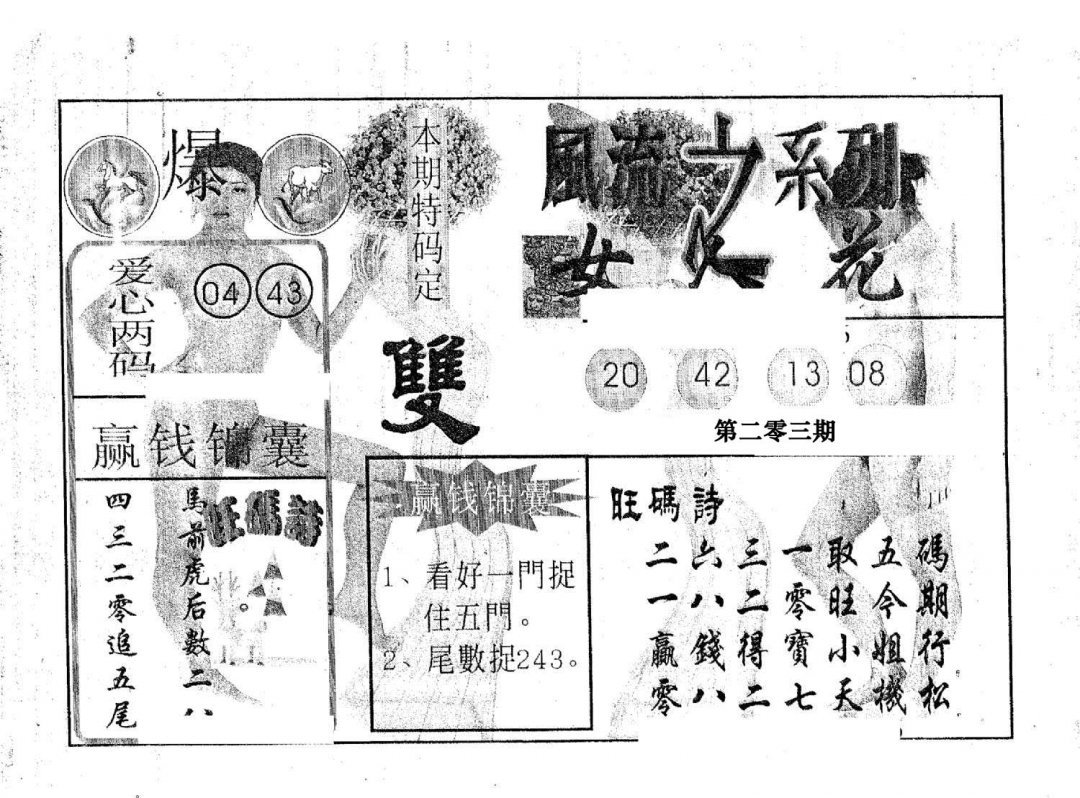 爆
爱心两码
04 43
赢钱锦囊
旺碼詩
馬前虎后数二八
四三二零追五尾
本期特码定
雙
赢钱锦囊
1、看好一門捉
住五門。
2、尾數捉243。
風流 系列
女人花
20 42 13 08
第二零三期
旺碼詩
二六三一取五碼
一八二零旺今期
贏錢得寶小姐行
零八二七天機松